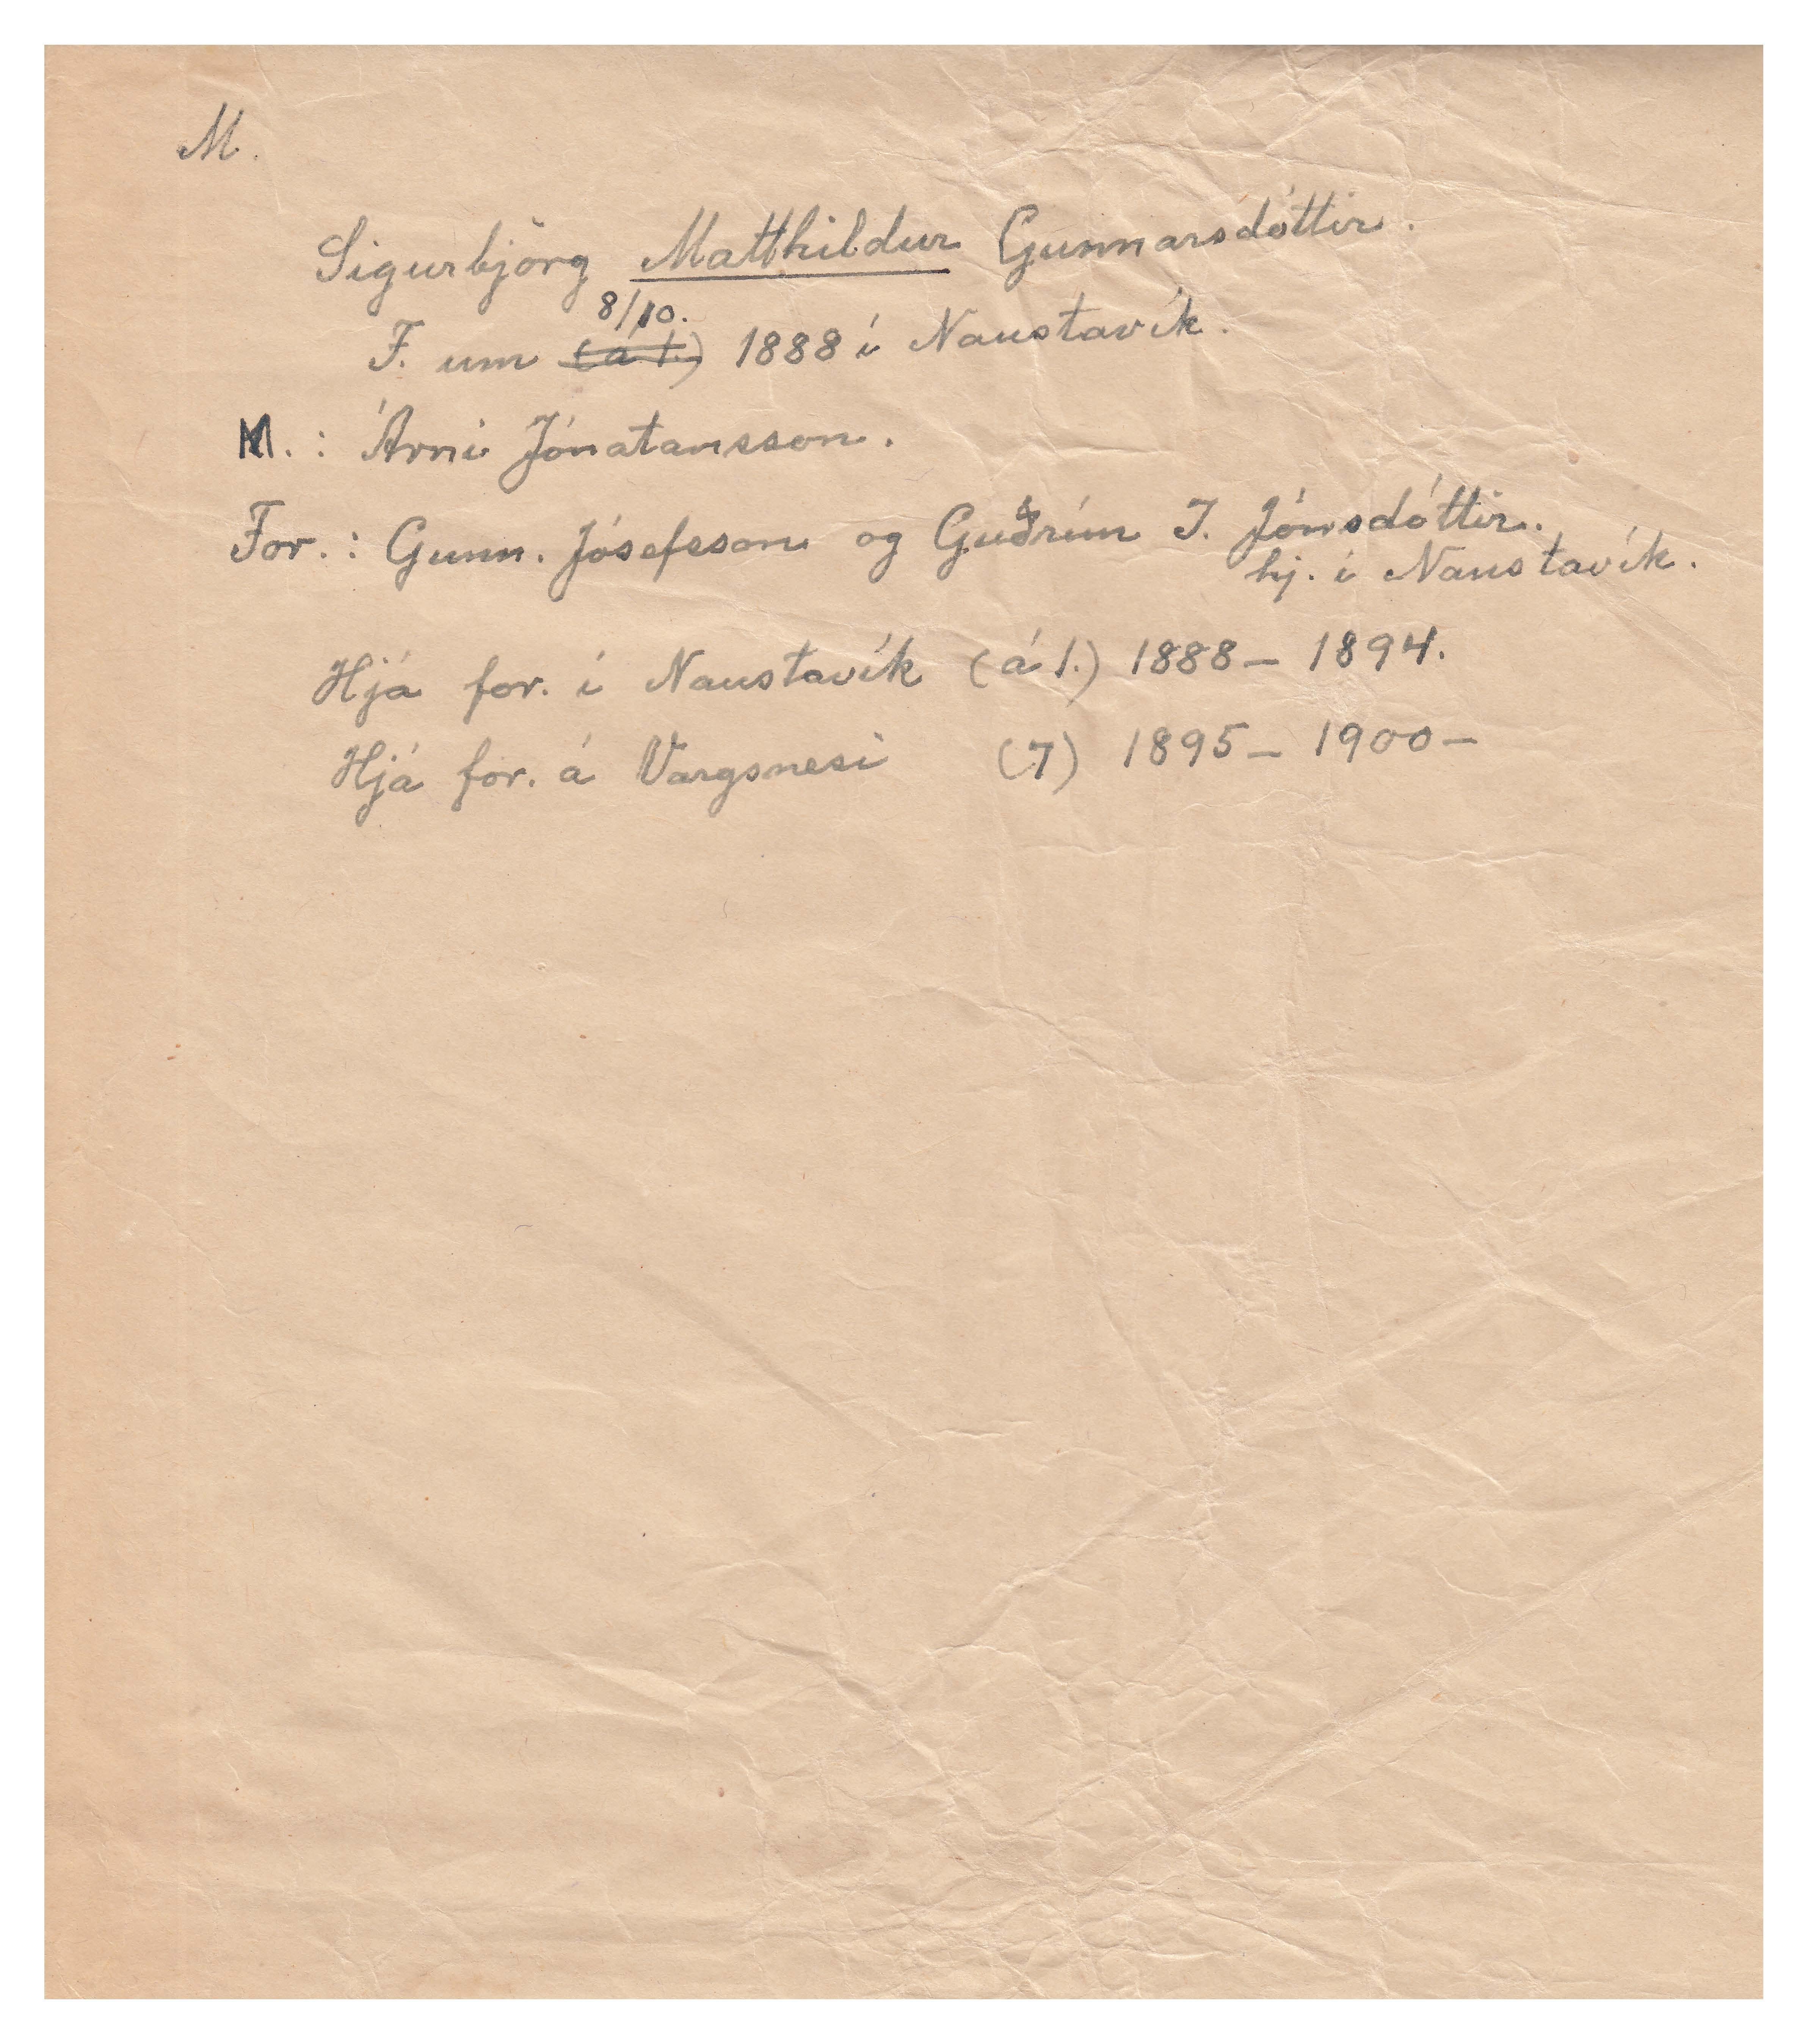 M.
Sigurbjörg Matthildur Gunnarsdóttir.
8/10.
F. um (á 1.) 1888 í Naustavík.
M. : Árni Jónatansson.
For. : Gunn. Jósefsson og Guðrún I. Jónsdóttir.
hj. í Naustavík.
Hjá for. í Naustavík (á 1.) 1888 – 1894.
Hjá for. á Vargsnesi (7) 1895 – 1900 –